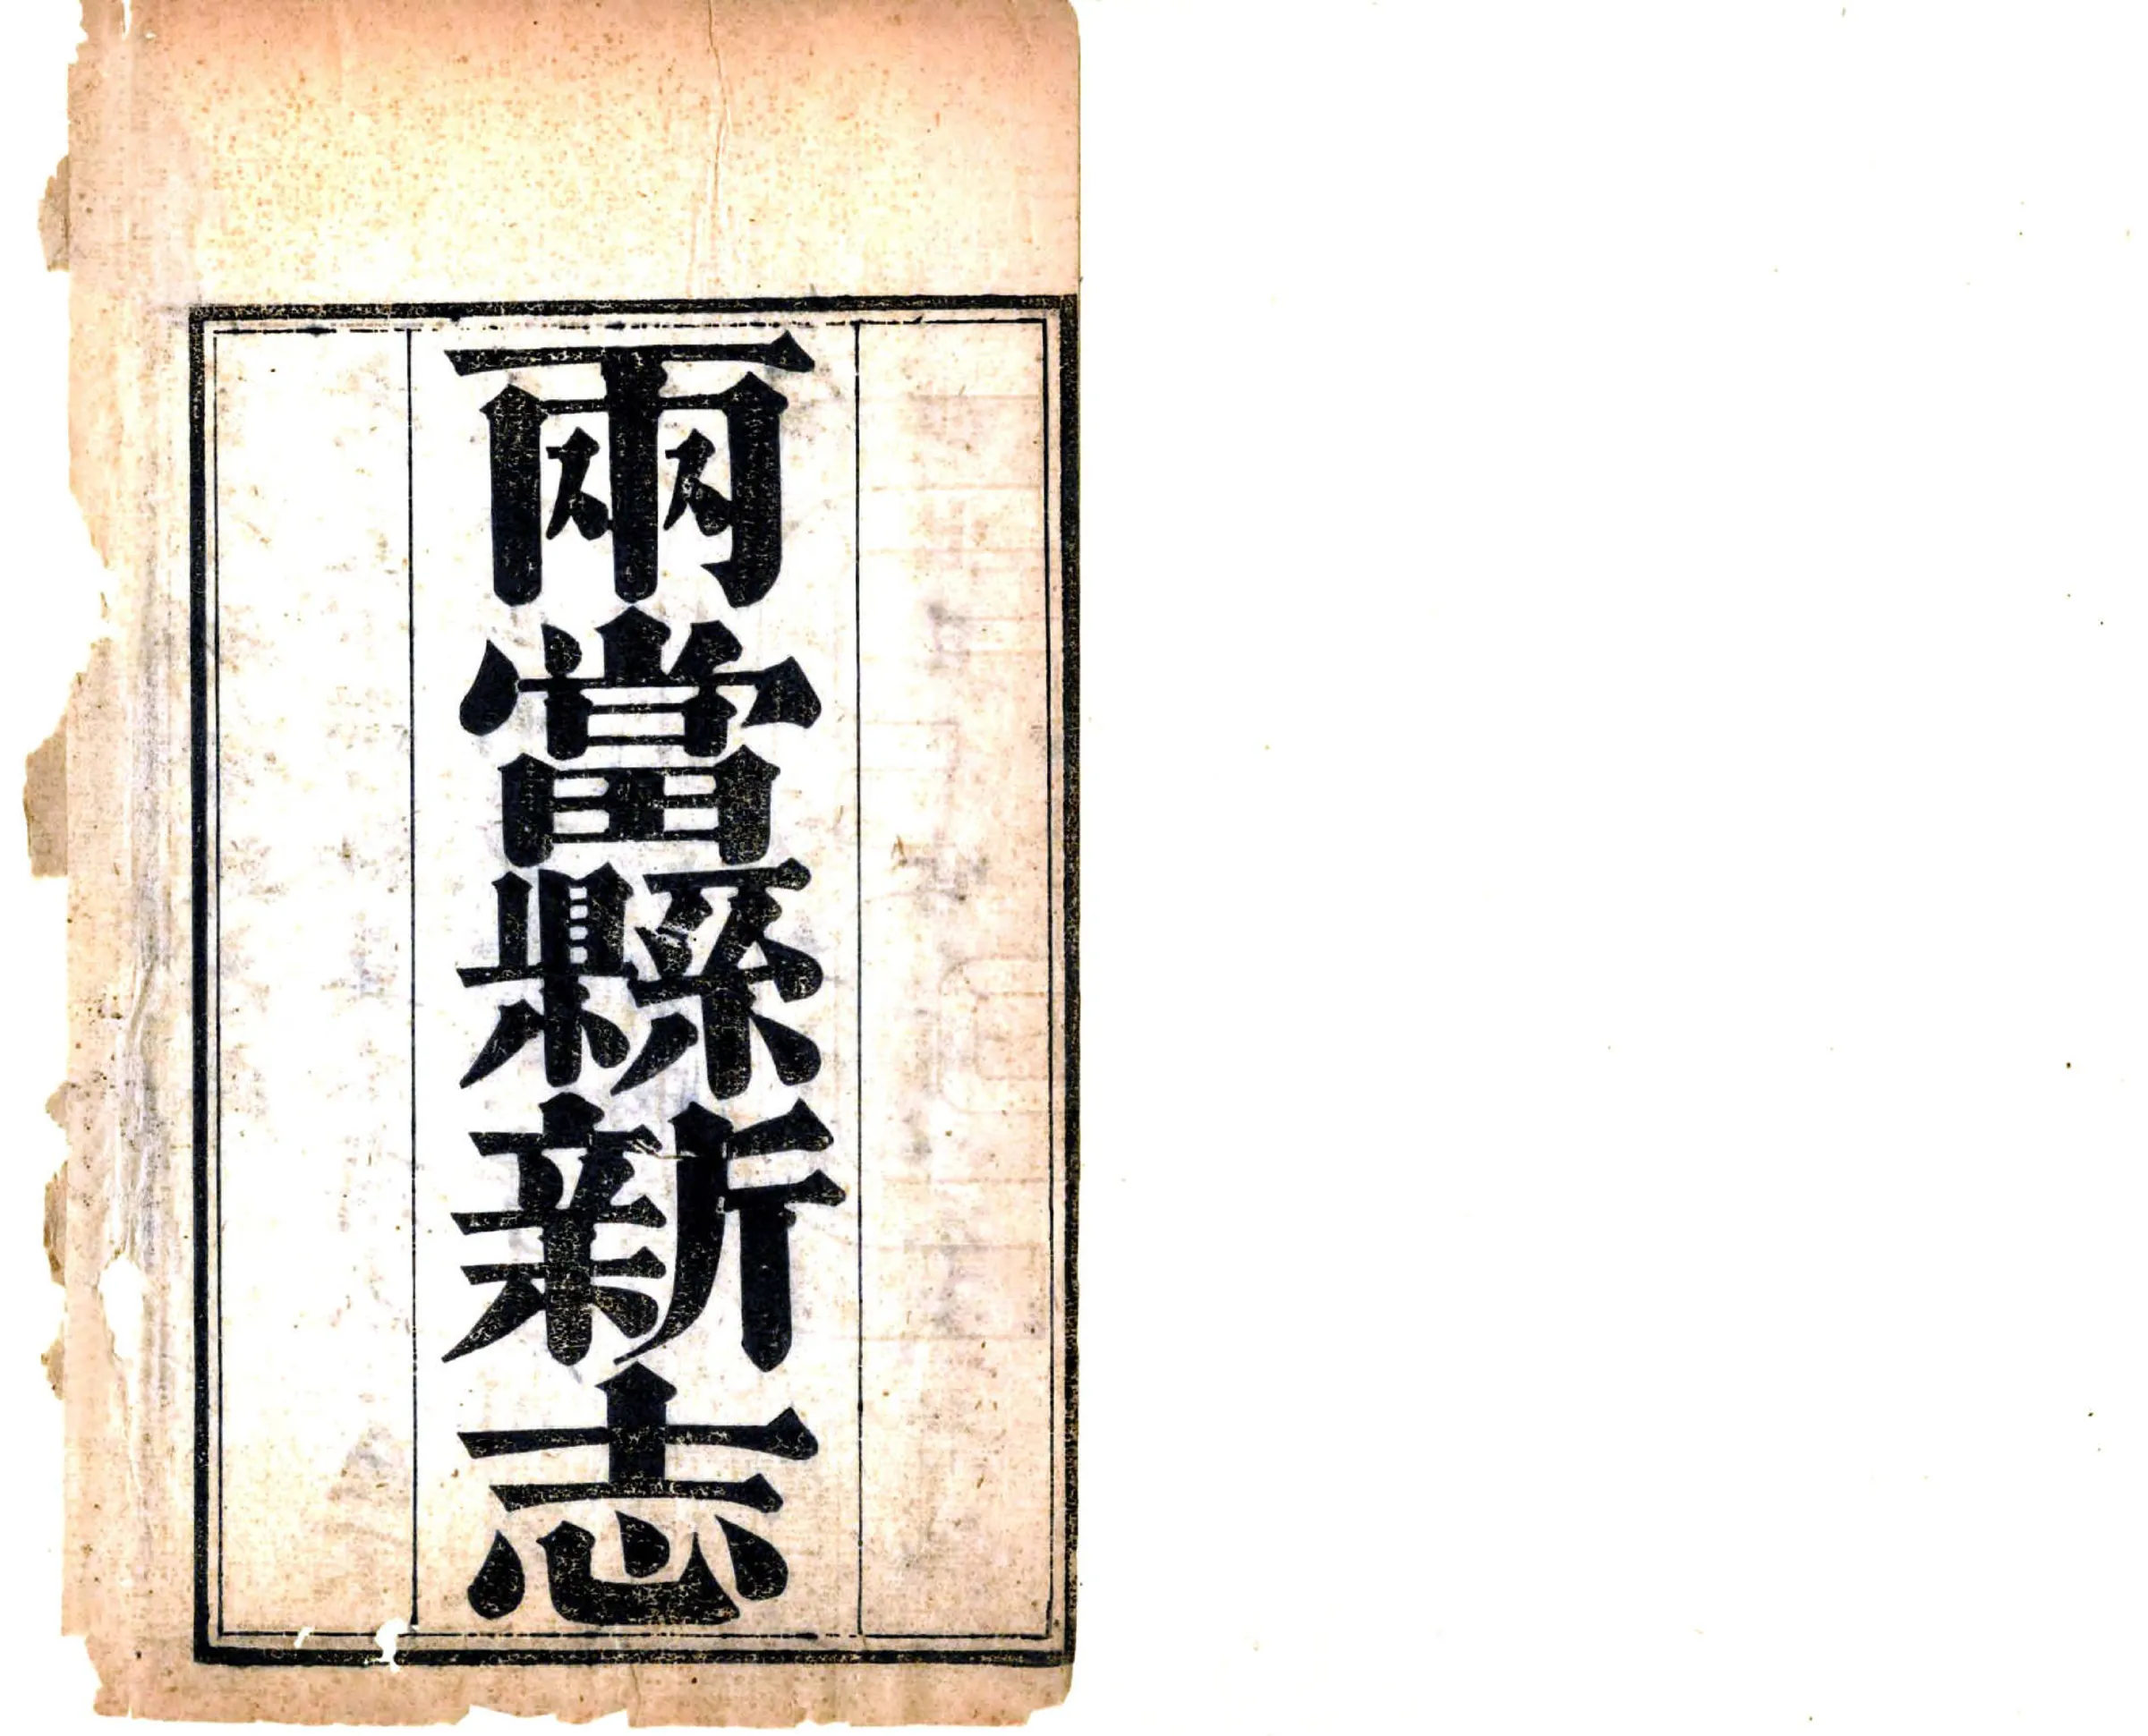 兩當縣新志